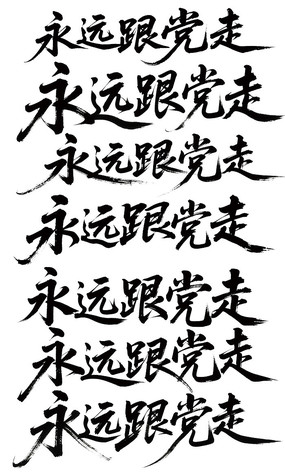 永远跟党走
永远跟党走
永远跟党走
永远跟党走
永远跟党走
永远跟党走
永远跟党走